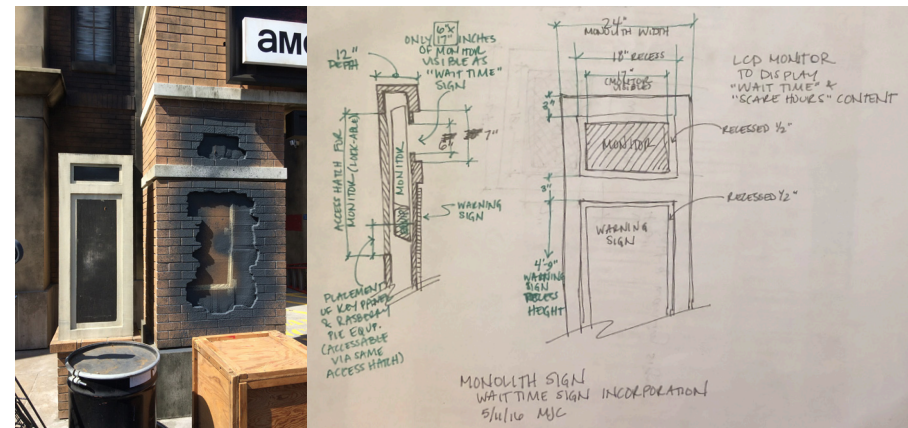 AMC
12"
DEPTH
ONLY 6"X 17" INCHES
OF MONITOR
VISIBLE AS
"WAIT TIME"
SIGN
ACCESS HATCH FOR
MONITOR (LOCK-ABLE)
MONITOR
6"
7"
WARNING
SIGN
PLACEMENT
OF KEY PANEL
& RASBERRY
PIE EQUP.
(ACCESSABLE
VIA SAME
ACCESS HATCH)
24"
MONOLITH WIDTH
18" RECESS
17"
(MONITOR
VISIBLE)
MONITOR
RECESSED 1/2"
3"
RECESSED 1/2"
WARNING
SIGN
4'-9"
WARNING
SIGN
RECESS
HEIGHT
LCD MONITOR
TO DISPLAY
"WAIT TIME" &
"SCARE HOURS" CONTENT
MONOLITH SIGN
WAIT TIME SIGN INCORPORATION
5/11/16 MJC